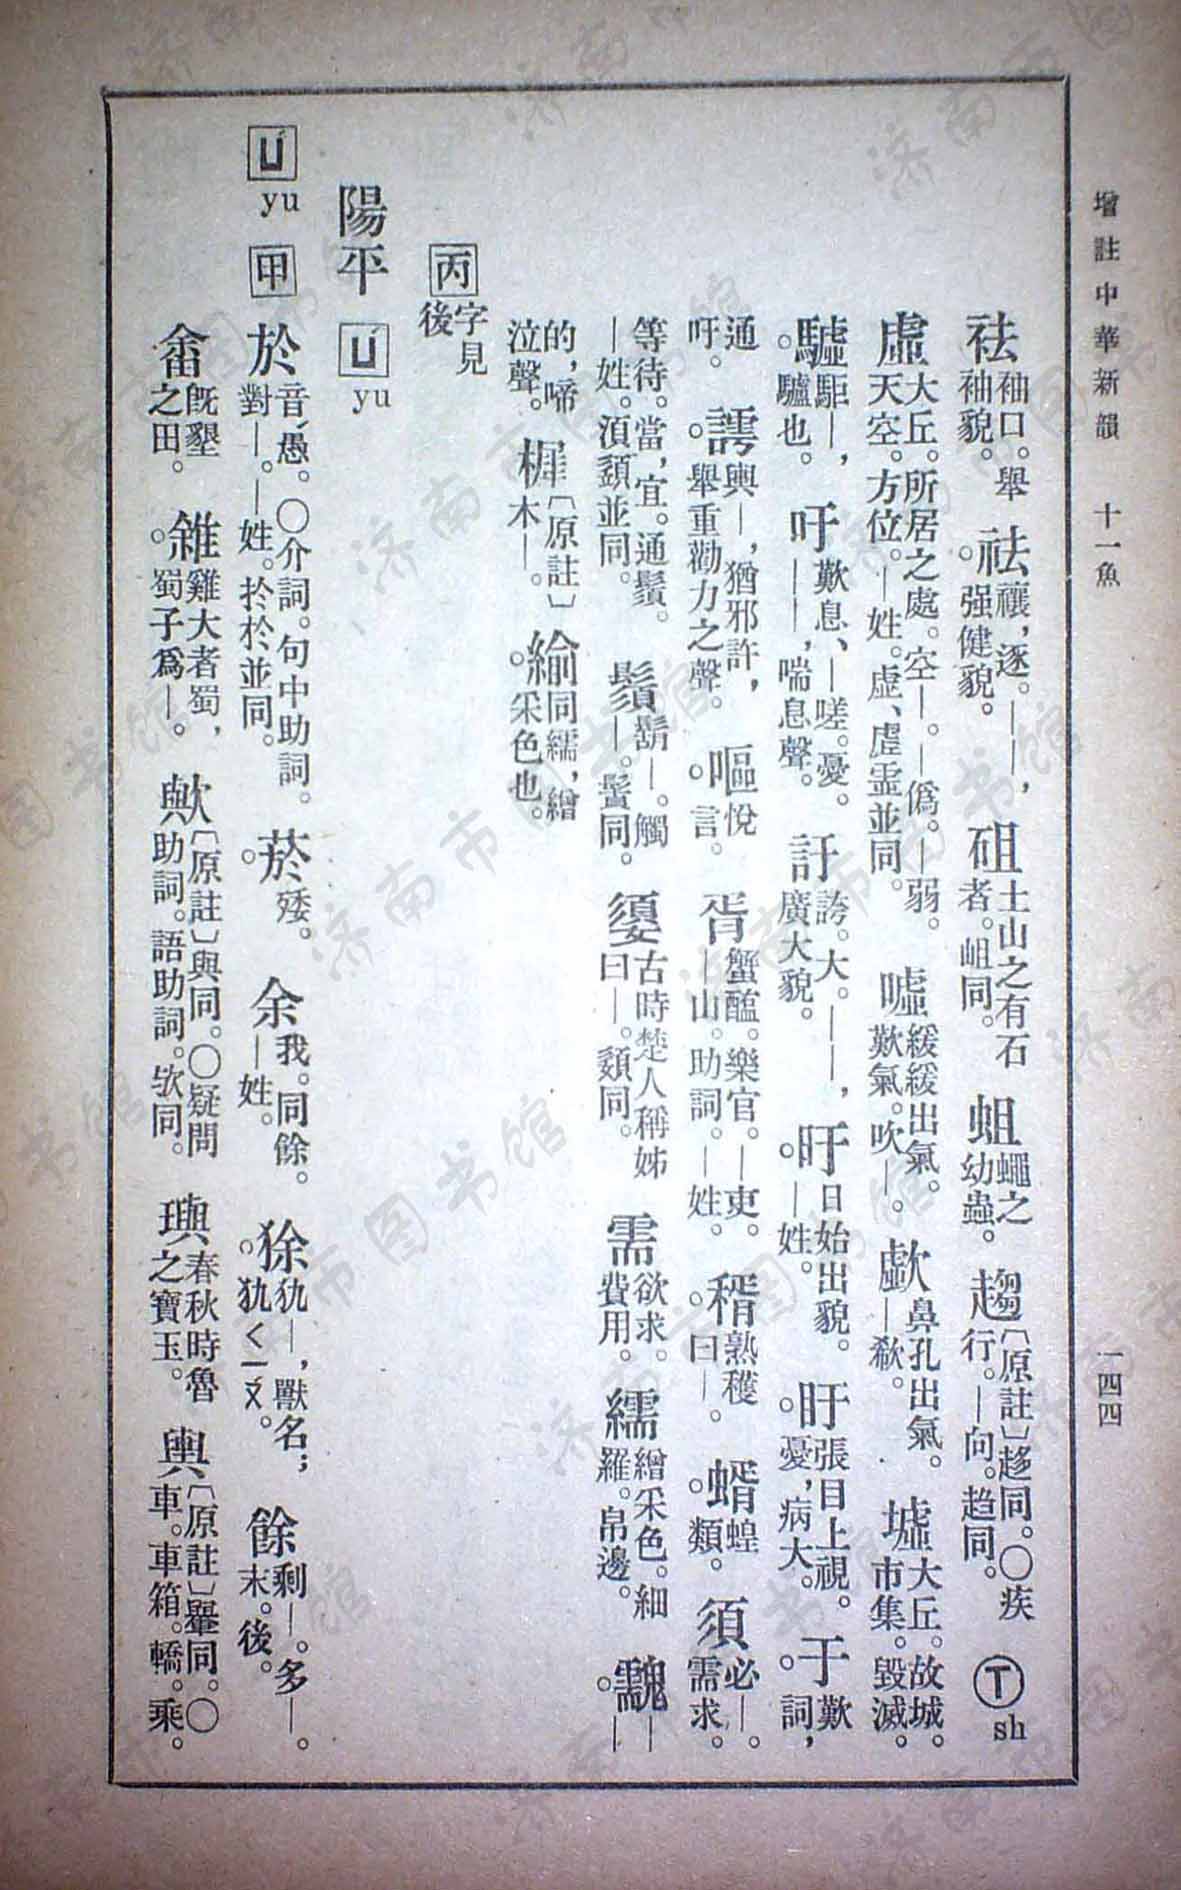 增註中華新韻　十一魚　一四四
袪袖口。舉袖貌。祛禳，逐。——，强健貌。砠土山之有石者。岨同。蛆蠅之幼蟲。趨〔原註〕趍同。〇疾行。—向。趋同。ㄒsh
虛大丘。所居之處。空—。—僞。—弱。天空。方位。—姓。虚、虗䨲並同。噓緩緩出氣。歎氣。吹—。歔鼻孔出氣。—欷。墟大丘。故城。市集。毀滅。
驉駏—，驢也。吁歎息、—嗟。憂。——，喘息聲。訏誇。大。——，廣大貌。旴日始出貌。—姓。盱張目上視。憂，病大。于歎詞，
通吁。謣輿—，猶邪許，舉重勸力之聲。嘔悅言。胥蟹醢。樂官。—吏。—山。助詞。—姓。稰熟穫曰—。蝑蝗類。須必—。需求。
等待。當，宜。通鬚。—姓。湏䫇並同。鬚鬍—。觸—。鬢同。嬃古時楚人稱姊曰—。䫇同。需欲求。費用。繻繒采色。細羅。帛邊。魗——
的，啼泣聲。楈〔原註〕木—。緰同繻，繒采色也。
丙字見後
陽平　ㄩyu
ㄩyu　甲　於音愚。〇介詞。句中助詞。對—。—姓。扵於並同。菸矮。余我。同餘。—姓。狳犰—，獸名；犰ㄑㄧㄡ。餘剩—。多—。末。後。
畬既墾之田。雓雞大者蜀，蜀子爲—。歟〔原註〕與同。〇疑問助詞。語助詞。欤同。璵春秋時魯之寶玉。輿〔原註〕轝同。〇車。車箱。轎。乘。